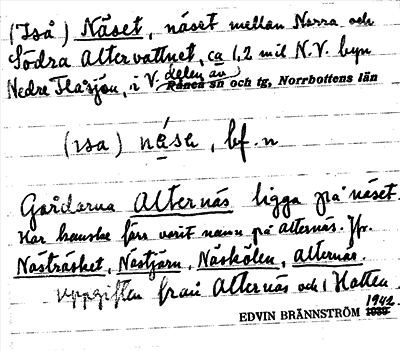 (Iså) Näset, näset mellan Norra och
Södra Altervattnet, ca 1,2 mil N.V. byn
Nedre Flåsjön, i V. delen av
Råneå sn och tg, Norrbottens län
(ısa) nä́sə, bf. n
Gårdarna Alternäs ligga på näset.
Har kanske förs varit namn på Alternäs. Jfr.
Nästräsket, Nästjärn, Näskölen, Alternäs.
Uppgiften från Alternäs och i Hatten
EDVIN BRÄNNSTRÖM 1942.
1939